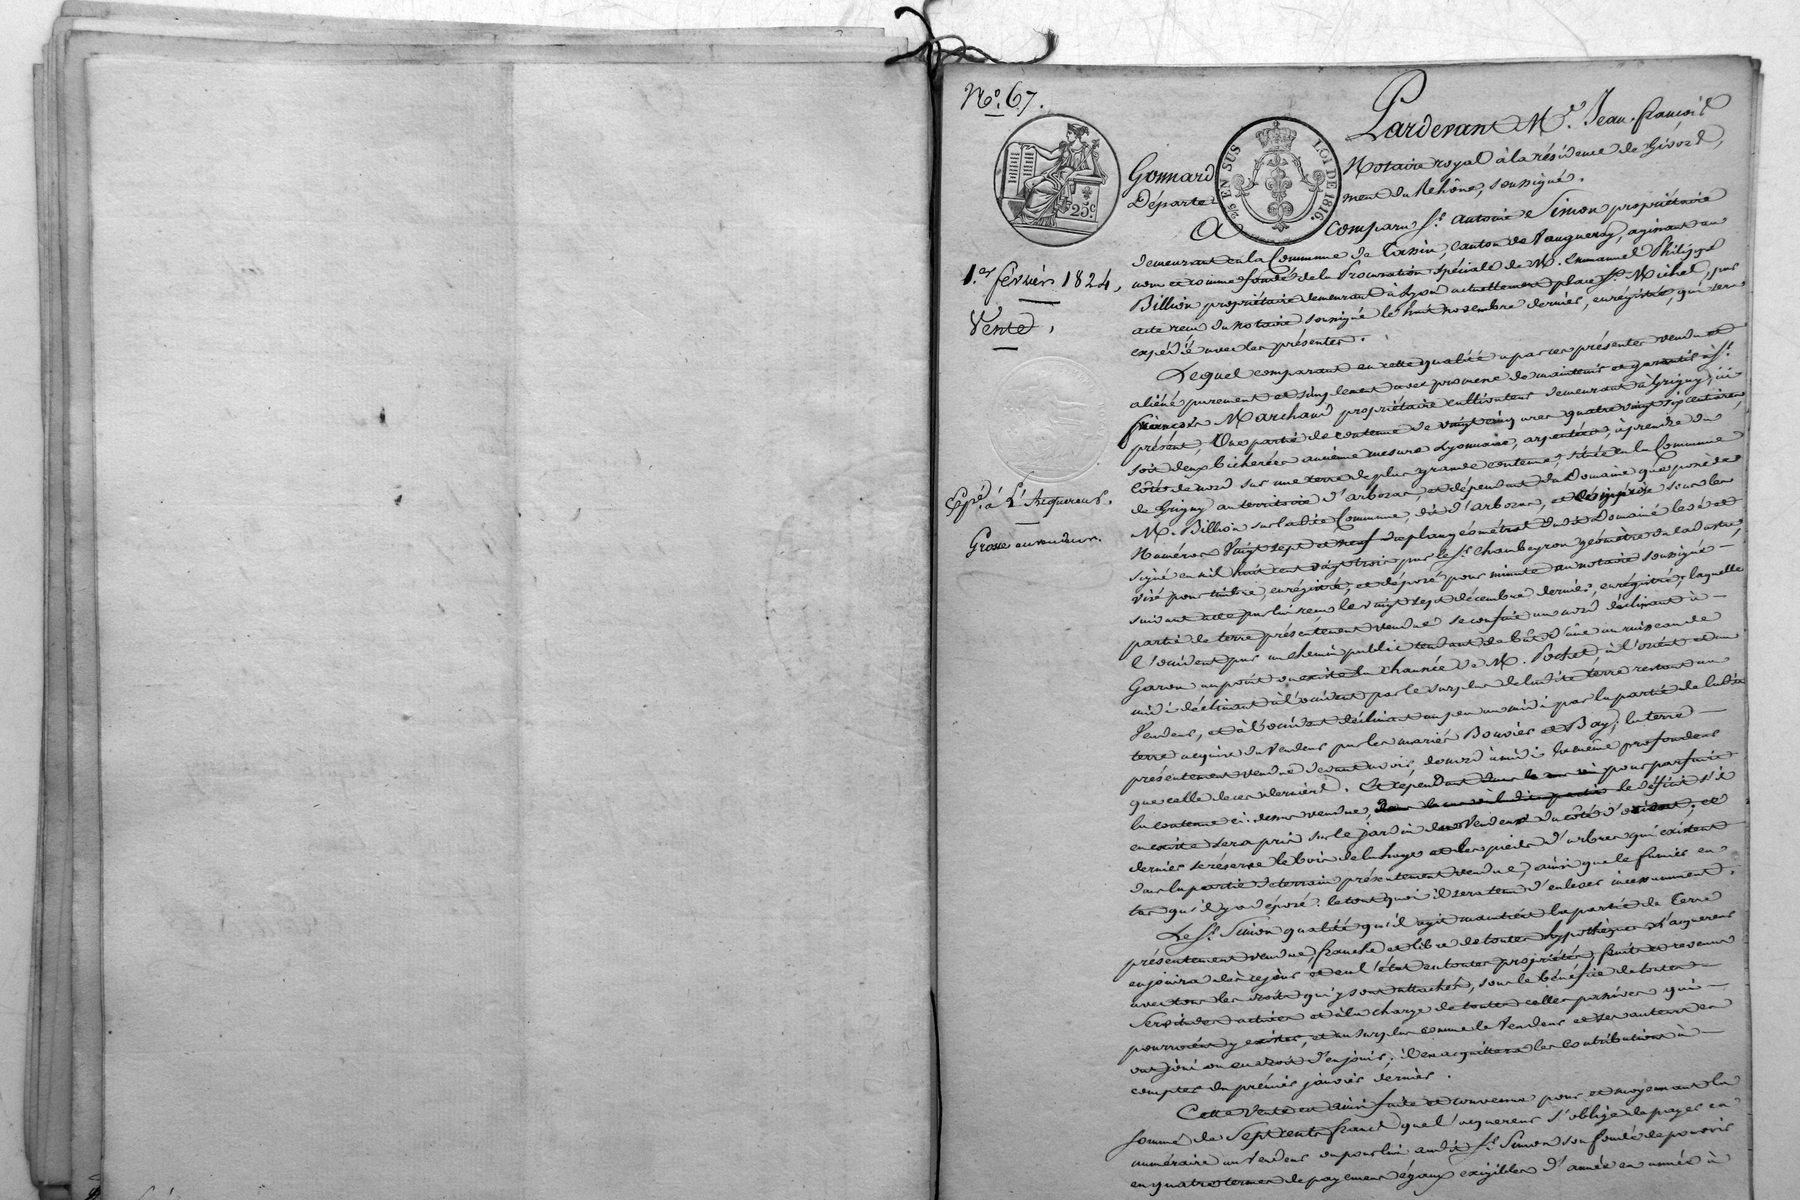 N.º 67.
Pardevant M.e Jean-françois
Gonnard
Notaire royal à la résidence de Givord,
Départe-
ment du Rhône, soussigné.
25 c
2/5 EN SUS LOI DE 1816.
A comparu S.r antoine Simon propriétaire
demeurant en la Commune de Tassin, canton de Vaugneray, agissant au
1.er février 1824,
nom et comme fondé de la Procuration spéciale de M. Emmanuel Philippe
Billion propriétaire demeurant à Lyon actuellement place S.t Michel, par
Vente,
acte recu du notaire soussigné le huit novembre dernier, enregistré, qui sera
expédié avec les présentes.
Lequel comparant en cette qualité a par ces présentes vendu et
aliéné purement et simplement avec promesse de maintenir et garantir à S.r
françois Marchand propriétaire cultivateur demeurant à Grigny, ici
présent, Une partie de contenue de vingt cinq ares quatre vingt six centiares,
soit deux bicherées ancienne mesure Lyonnaise, arpentées, à prendre du
Côté de nord sur une terre de plus grande contenue, située en la Commune
Expé. à L'Acquereur.
de Grigny au territoire d'arboras, et dépendant du Domaine que possède
M. Billion sur ladite Commune, dit d'arboras, et désignée sous les
Grosse au vendeur.
Numéros Vingt sept et neuf du plan géométral dudit Domaine levé et
signé en mil huit cent vingt trois par le S.r Chambeyron géomètre du cadastre,
visé pour timbre, enregistré, et déposé pour minute au notaire soussigné
suivant acte par lui recu le vingt sept décembre dernier, enregistré; laquelle
partie de terre présentement vendue se confine au nord déclinant à
l'occident par un chemin public tendant de bût d'âne au ruisseau de
Garon au point où existe la chaussée de M. Pochet, à l'orient et au
midi déclinant à l'occident par le surplus de ladite terre restant au
Vendeur, et à l'occident déclinant un peu au midi par la partie de ladite
terre acquise du Vendeur par les mariés Bouvier et Bay; la terre
présentement vendue devant avoir, de nord à midi la même profondeur
que celle de ces derniers. Et cependant pour parfaire
la contenue ci-dessus vendue, le déficit s'il
en existe sera pris sur le jardin du Vendeur du côté d'orient, ce
dernier se réserve le bois de la haye et les pieds d'arbres qui existent
dans la partie de terrain présentement vendue, ainsi que le fumier en
tas qu'il y a déposé: le tout quoi il sera tenu d'enlever incessamment.
Le S.r Simon qualité qu'il agit maintient la partie de terre
présentement vendue, franche et libre de toutes hypothèques. L'acquereur
en jouira dès ce jour en l'état en toutes propriétés, fruits et revenus
avec tous les droits qui y sont attachés, sous le bénéfice de toutes
Servitudes actives et à la charge de toutes celles passives qui
pourroient y exister, et au surplus comme le Vendeur et ses auteurs en
ont joui ou eu droit d'en jouir; il en acquittera les Contributions à
compter du premier janvier dernier.
Cette Vente est ainsi faite et convenue pour et moyennant la
somme de Sept cents francs que l'acquereur s'oblige de payer en
numéraire au Vendeur ou pour lui audit S.r Simon son fondé de pouvoir
en quatre termes de payement égaux exigibles d'année en année à